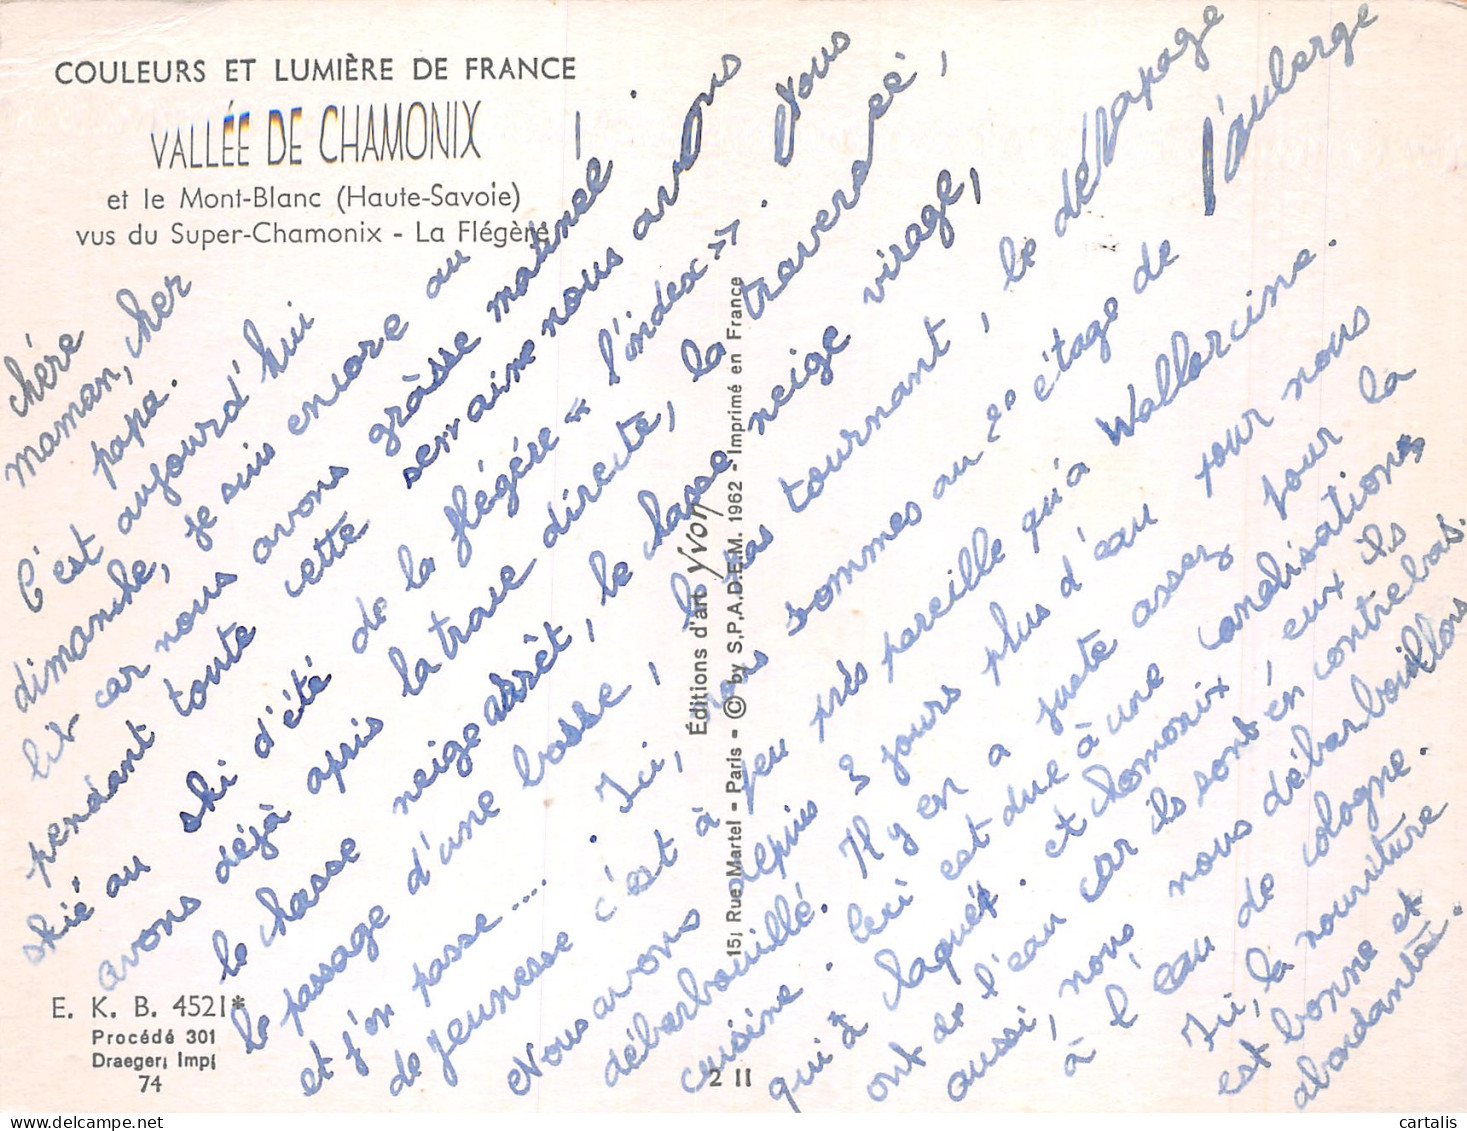 COULEURS ET LUMIÈRE DE FRANCE
VALLÉE DE CHAMONIX
et le Mont-Blanc (Haute-Savoie)
vus du Super-Chamonix - La Flégère
chére
maman, cher
papa.
C'est aujourd'hui
dimanche, je suis encore au
lit car nous avons grâsse matinée !
pendant toute cette semaine nous avons
skié au ski d'été de la flégére « l'index ». Nous
avons déjà apris la trace directe, la traversée,
le chasse neige arrêt, le chasse neige virage,
le passage d'une bosse, le pas tournant, le dérapage
et j'en passe.... . Ici, nous sommes au 2e étage de l'auberge
de jeunesse c'est à peu prés pareille qu'à Wallorcine.
Nous avons depuis 3 jours plus d'eau pour nous
débarbouillé. Il y en a juste assez pour la
cuisine. Ceci est due à une canalisations
qui à laquét. et chamonix eux ils
ont de l'eau car ils sont en contrebas.
aussi, nous nous débarbouillons
à l'eau de cologne.
Ici, la nourriture
est bonne et
abondante.
Éditions d'art Yvon
15, Rue Martel - Paris - © by S.P.A.D.E.M. 1962 - Imprimé en France
E. K. B. 4521*
Procédé 301
Draeger, Imp,
74
2 II
cartalis